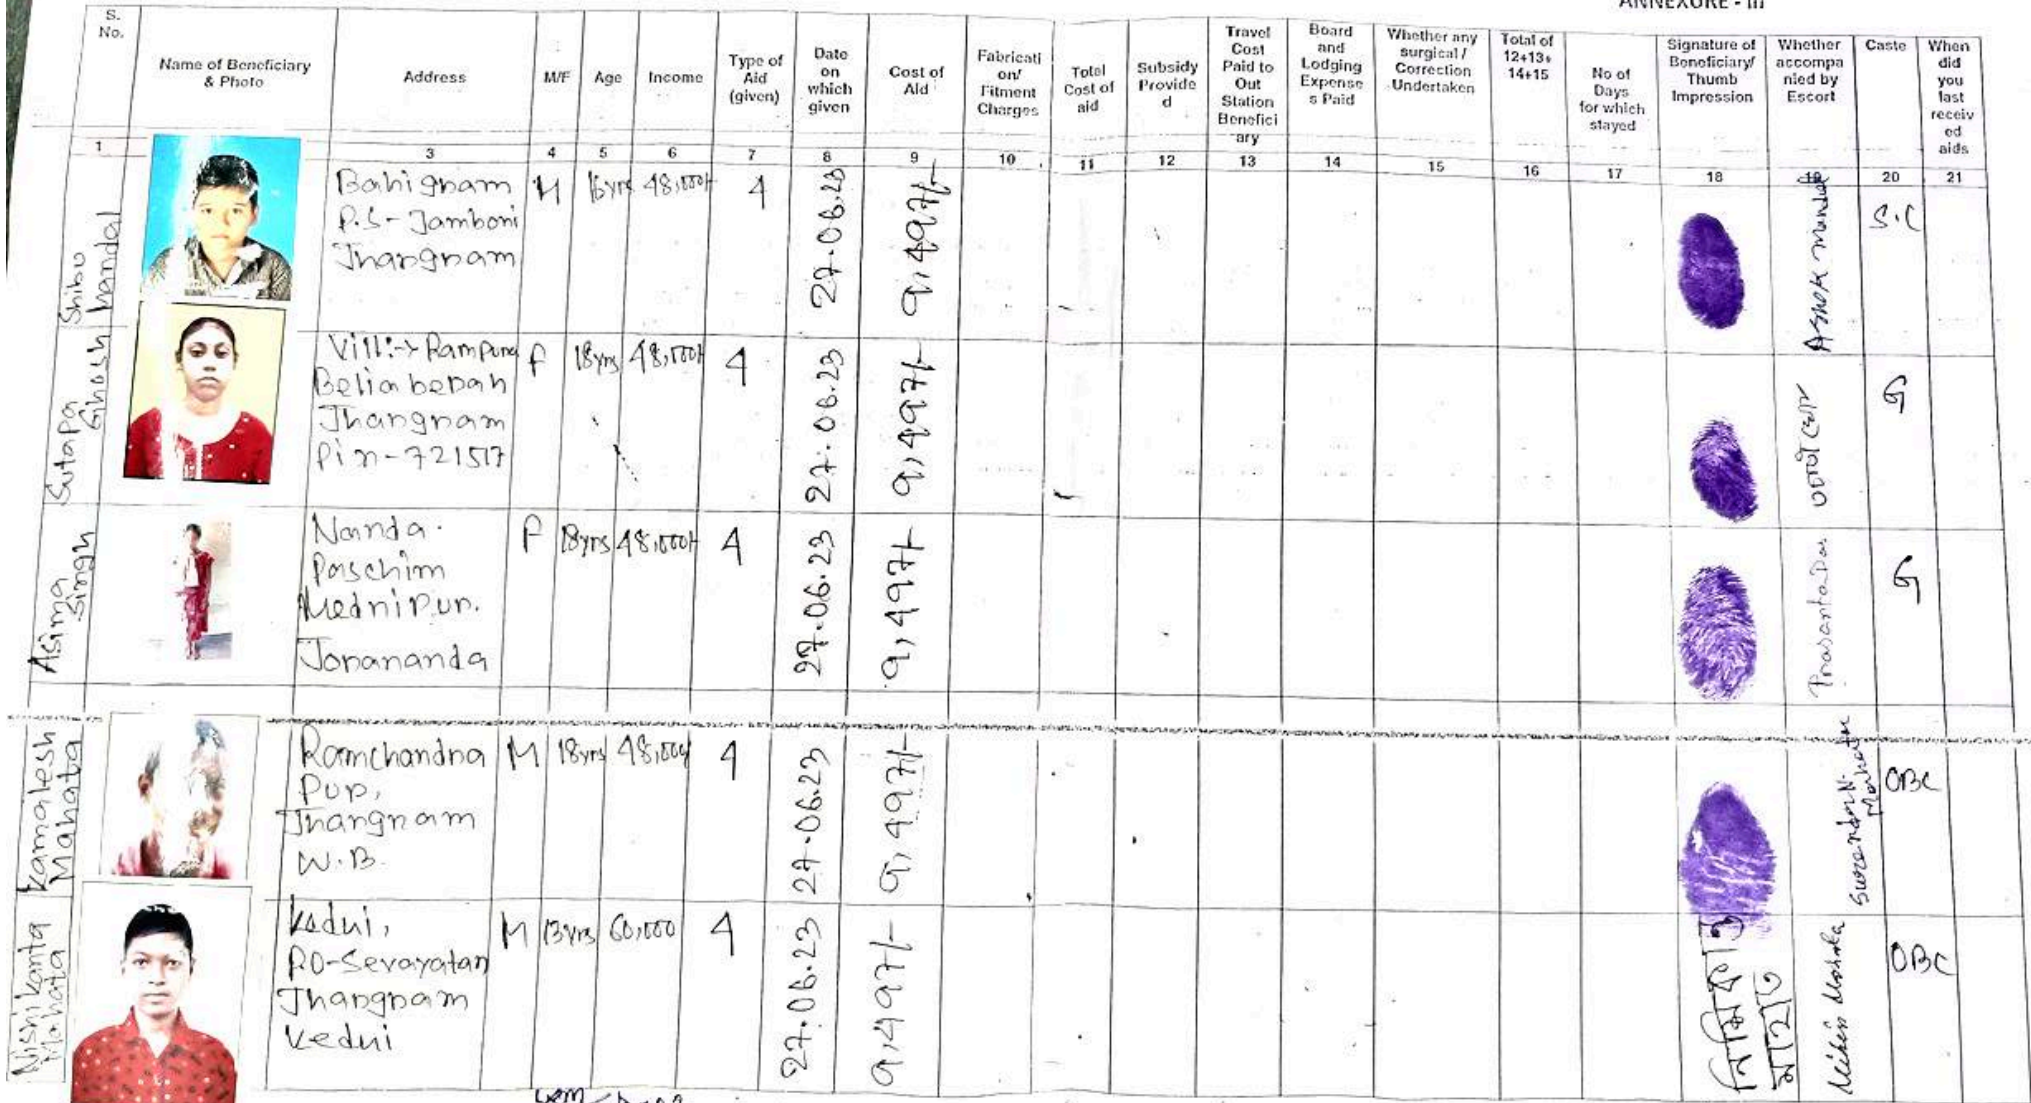 ANNEXURE - III
S. No.
Name of Beneficiary & Photo
Address
M/F
Age
Income
Type of Aid (given)
Date on which given
Cost of Aid
Fabricati on/ Fitment Charges
Total Cost of aid
Subsidy Provide d
Travel Cost Paid to Out Station Benefici ary
Board and Lodging Expense s Paid
Whether any surgical / Correction Undertaken
Total of 12+13+ 14+15
No of Days for which stayed
Signature of Beneficiary/ Thumb Impression
Whether accompa nied by Escort
Caste
When did you last receiv ed aids
1 3 4 5 6 7 8 9 10 11 12 13 14 15 16 17 18 19 20 21
Shibu Mandal
Bahignam
P.S - Jamboni
Jhangnam
M 16yrs 48,000/- 4 27.06.23 9,497/-
Ashok Mandal
S.C
Sutapa Ghosh
Vill:-> Rampura
Beliabebah
Jhangnam
Pin-721517
F 18yrs 48,000/- 4 27.06.23 9,497/-
G
Asima Singh
Nanda.
Paschim
Mednipur.
Jonananda
F 18yrs 48,000/- 4 27.06.23 9,497/-
Prasanta Das
G
Kamalesh Mahata
Ramchandra
Pur,
Jhangnam
W.B.
M 18yrs 48,000/ 4 27.06.23 9,497/-
Mahata
OBC
Nishikanta Mahata
Kedui,
P.O-Sevayatan
Jhangnam
Kedui
M 13yrs 60,000 4 27.06.23 9,497/-
নিশিকান্ত
মাহাত
OBC